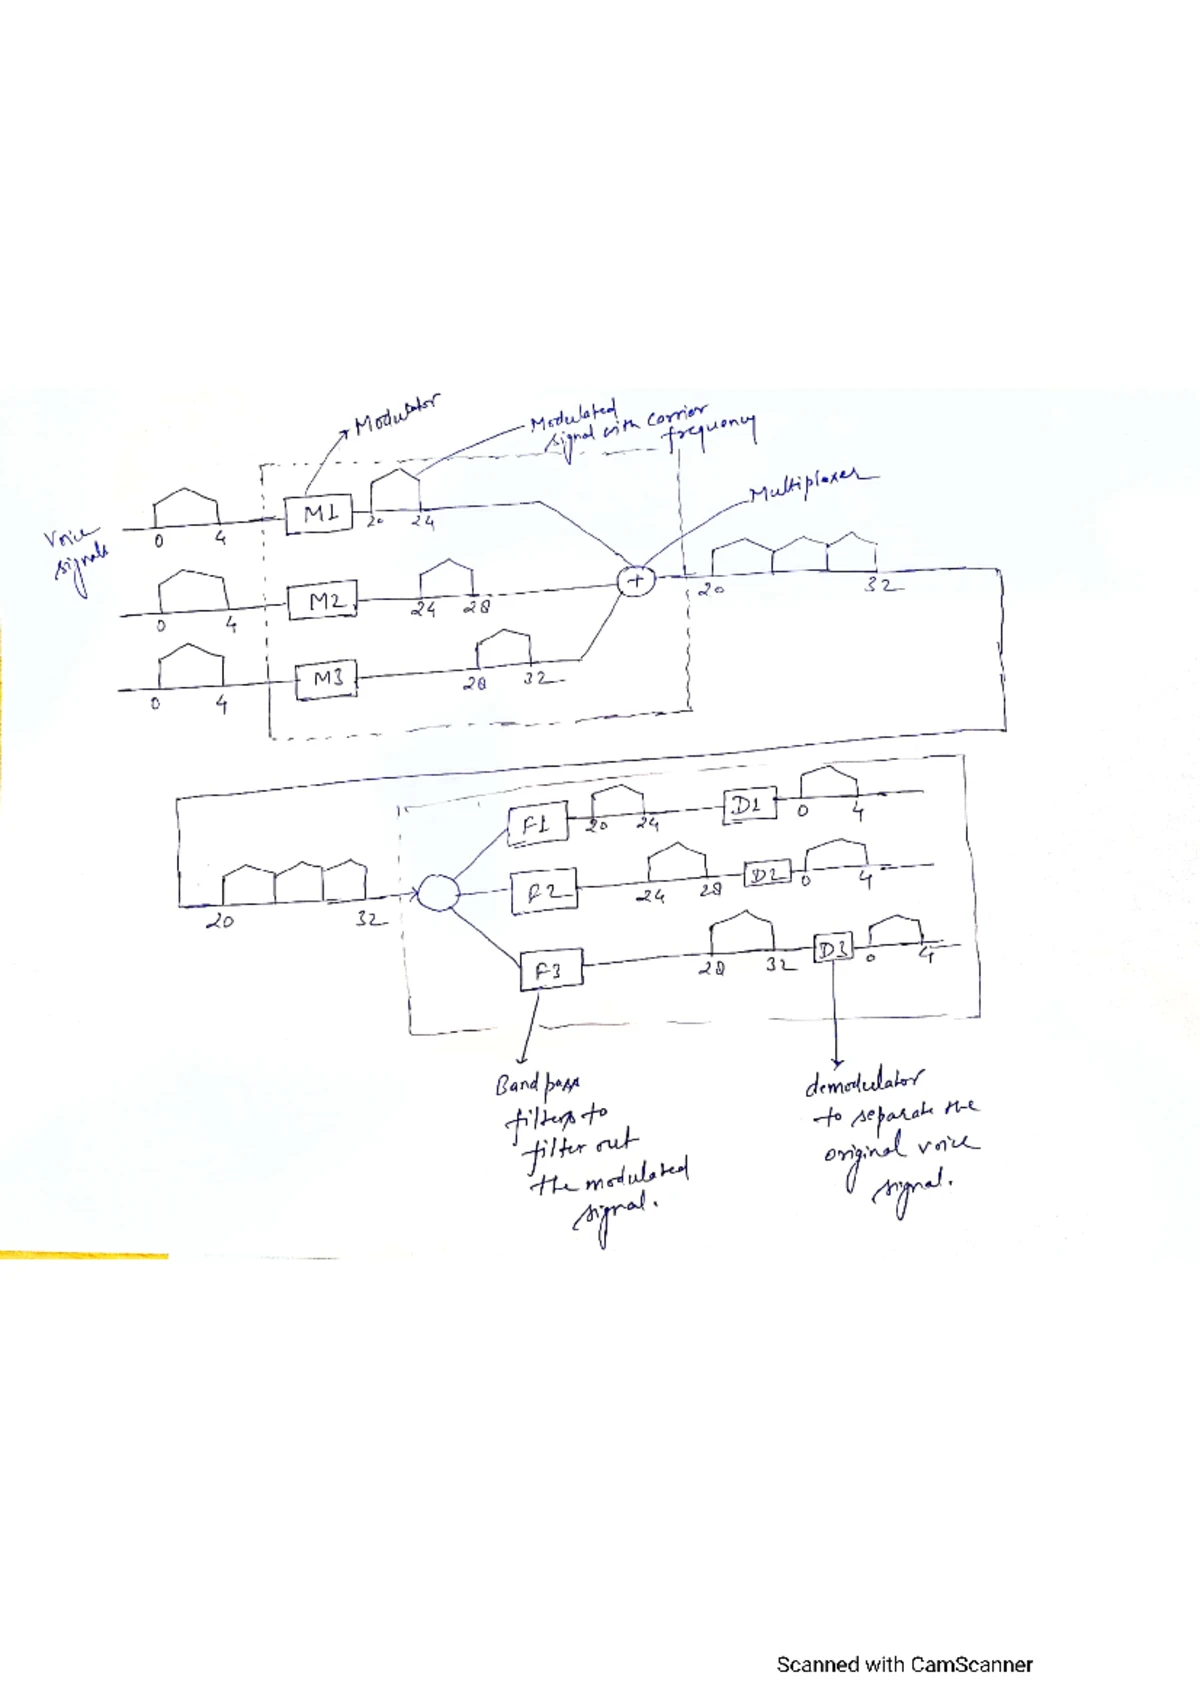 Modulator
Modulated
signal with carrier
frequency
Multiplexer
Voice
signals
0 4
M1
20 24
+
20 32
0 4
M2
24 28
0 4
M3
28 32
F1
20 24
D1
0 4
20 32
F2
24 28
D2
0 4
F3
28 32
D3
0 4
Bandpass
filters to
filter out
the modulated
signal.
demodulator
to separate the
original voice
signal.
Scanned with CamScanner